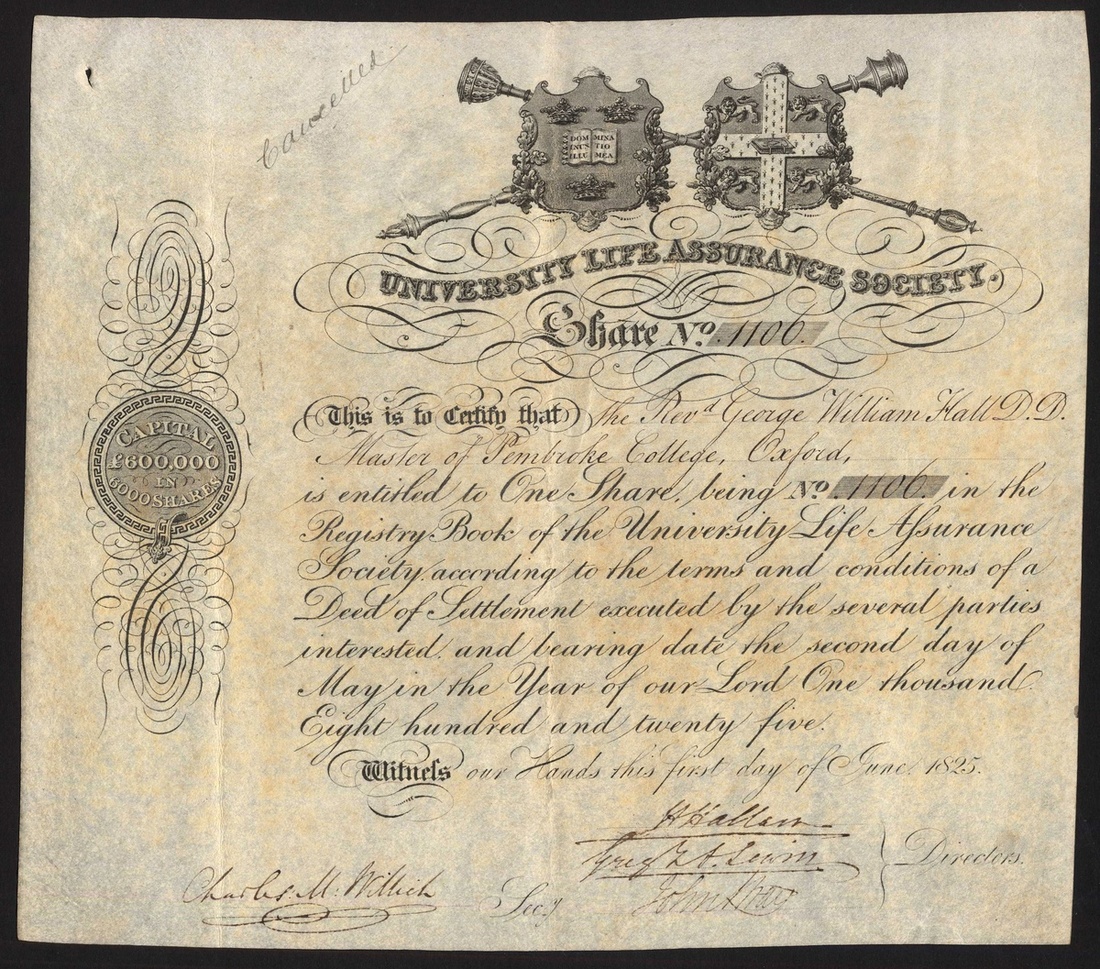 Cancelled
DOMINUS ILLU
MINATIO MEA
UNIVERSITY LIFE ASSURANCE SOCIETY.
Share No. 1106.
CAPITAL
£600,000
IN
6000 SHARES
This is to Certify that the Revd George William Hall D.D.
Master of Pembroke College, Oxford,
is entitled to One Share, being No. 1106. in the
Registry Book of the University Life Assurance
Society, according to the terms and conditions of a
Deed of Settlement executed by the several parties
interested, and bearing date the second day of
May in the Year of our Lord One thousand
Eight hundred and twenty five.
Witness our Hands this first day of June, 1825.
H Hallam
Lewin
John
Directors.
Charles M. Willich Secy